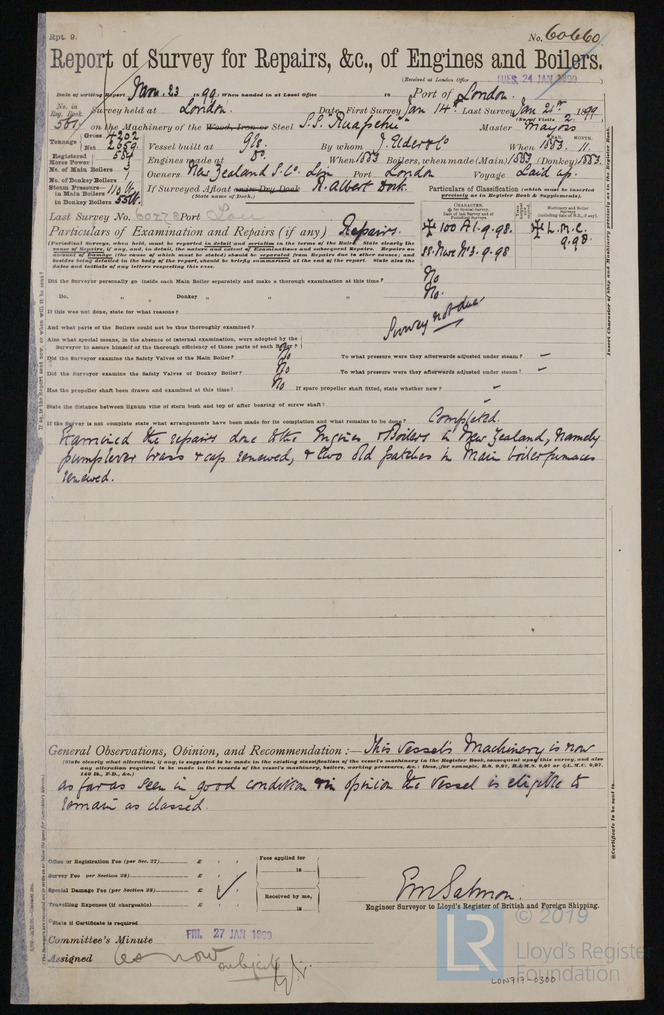 Rpt. 9.
No. 60660.
Report of Survey for Repairs, &c., of Engines and Boilers.
(Received at London Office TUES. 24 JAN 1899)
Date of writing Report Jan. 23 1899. When handed in at Local Office 18 Port of London.
No. in Reg. Book. Survey held at London. Date, First Survey Jan 14th Last Survey Jan 21st 1899
(No. of Visits 2.)
on the Machinery of the Wood, Iron or Steel S.S. Ruapehu Master Mayors
Tonnage Gross 4202 Net 2659 Vessel built at Gls. By whom J. Elder & Co When 1883. 11.
Registered Horse Power Engines made at Do. When 1883 Boilers, when made (Main) 1883 (Donkey) 1883.
No. of Main Boilers 3 Owners New Zealand S. Co. Lim Port London Voyage Laid up.
No. of Donkey Boilers 1
Steam Pressure in Main Boilers 110 lb. If Surveyed Afloat or in Dry Dock R. Albert Dock.
in Donkey Boilers 55 lb. (State name of Dock.)
Particulars of Classification (which must be inserted precisely as in Register Book & Supplements).
Last Survey No. 60278 Port Lon
CHARACTER.
Machinery and Boiler Surveys
✠ 100 A1. 9.98. ✠ L.M.C. 9.98.
Particulars of Examination and Repairs (if any) Repairs.
(Periodical Surveys, when held, must be reported in detail and seriatim in the terms of the Rules. State clearly the
cause of Repairs, if any, and, in detail, the nature and extent of Examinations and subsequent Repairs. Repairs on
account of Damage (the cause of which must be stated) should be separated from Repairs due to other causes; and
besides being detailed in the body of the report, should be briefly summarised at the end of the report. State also the
dates and initials of any letters respecting this case.
Did the Surveyor personally go inside each Main Boiler separately and make a thorough examination at this time? No
Do. „ „ Donkey „ „ „ „ No.
If this was not done, state for what reasons? Survey not due
And what parts of the Boilers could not be thoroughly examined?
Also what special means, in the absence of internal examination, were adopted by the
Surveyor to assure himself of the thorough efficiency of those parts of each Boiler?
Did the Surveyor examine the Safety Valves of the Main Boiler? No To what pressure were they afterwards adjusted under steam? —
Did the Surveyor examine the Safety Valves of Donkey Boiler? No To what pressure were they afterwards adjusted under steam? —
Has the propeller shaft been drawn and examined at this time? No If spare propeller shaft fitted, state whether new? —
State the distance between lignum vitæ of stern bush and top of after bearing of screw shaft? —
If the Survey is not complete state what arrangements have been made for its completion and what remains to be done? Completed.
Examined the repairs done to the Engines & Boilers in New Zealand, namely
pump lever brass & cap renewed, & two old patches in main boiler furnaces
renewed.
General Observations, Opinion, and Recommendation:— This Vessel's Machinery is now
(State clearly what alteration, if any, is suggested to be made in the existing classification of the vessel's machinery in the Register Book, consequent upon this survey, and also
any alteration required to be made in the records of the vessel's machinery, boilers, working pressures, &c.: thus, for example, B.S. 9,97, B.&M.S. 9,97 or ✠L.M.C. 9,97,
140 lb., F.D., &c.)
as far as seen in good condition & in opinion the Vessel is eligible to
remain as classed.
Office or Registration Fee (per Sec. 27) £
Survey Fee (per Section 28) £
Special Damage Fee (per Section 28) £
Travelling Expenses (if chargeable) £
Fees applied for
18
Received by me,
18
E M Salmon.
Engineer Surveyor to Lloyd's Register of British and Foreign Shipping.
State if Certificate is required
Committee's Minute FRI. 27 JAN 1899
Assigned as now
subject
© 2019
LR
Lloyd's Register
Foundation
LON717-0300